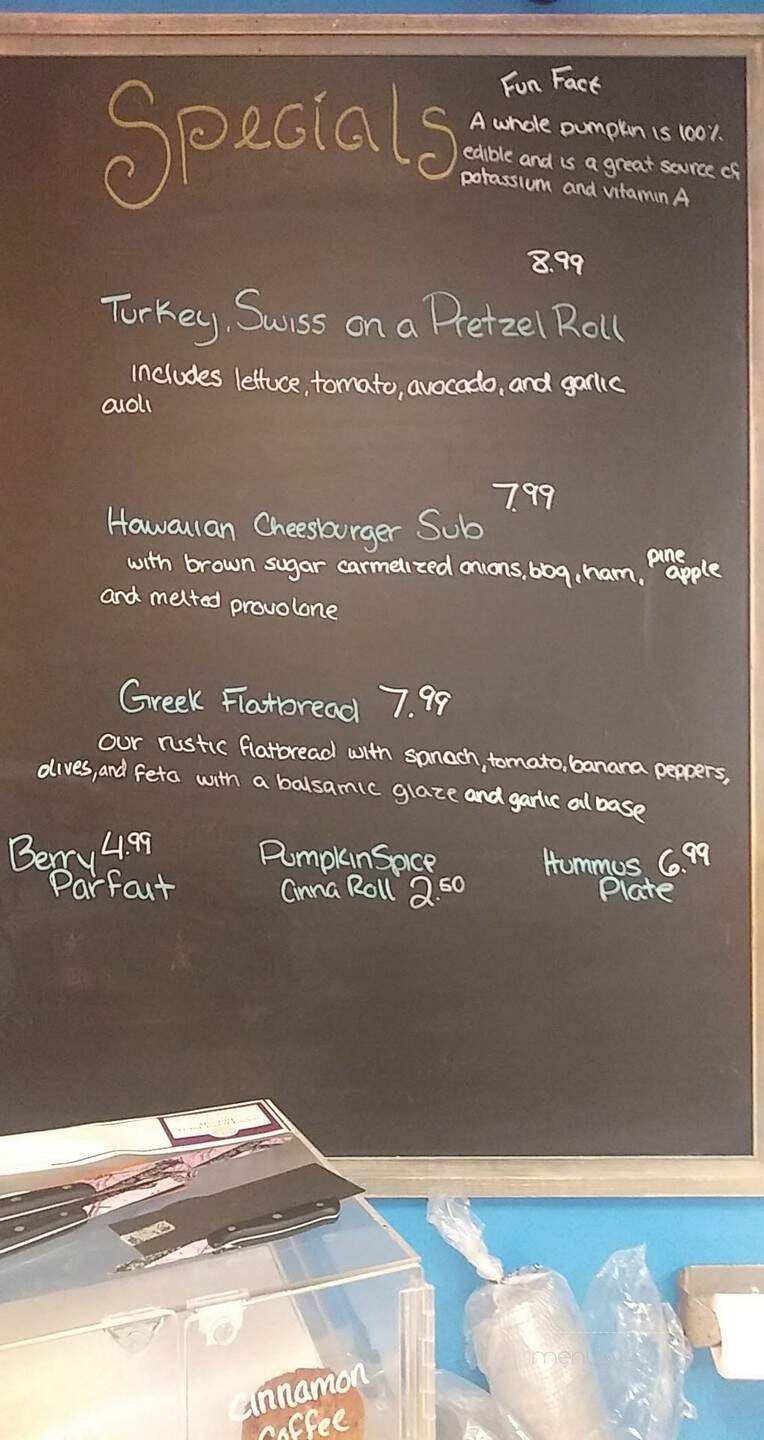 Specials
Fun Fact
A whole pumpkin is 100%
edible and is a great source of
potassium and vitamin A
8.99
Turkey, Swiss on a Pretzel Roll
includes lettuce, tomato, avocado, and garlic
aioli
7.99
Hawaiian Cheesburger Sub
with brown sugar carmelized onions, bbq, ham, pine apple
and melted provolone
Greek Flatbread 7.99
our rustic flatbread with spinach, tomato, banana peppers,
olives, and feta with a balsamic glaze and garlic oil base
Berry 4.99
Parfait
Pumpkin Spice
Cinna Roll 2.50
Hummus 6.99
Plate
Cinnamon
Coffee